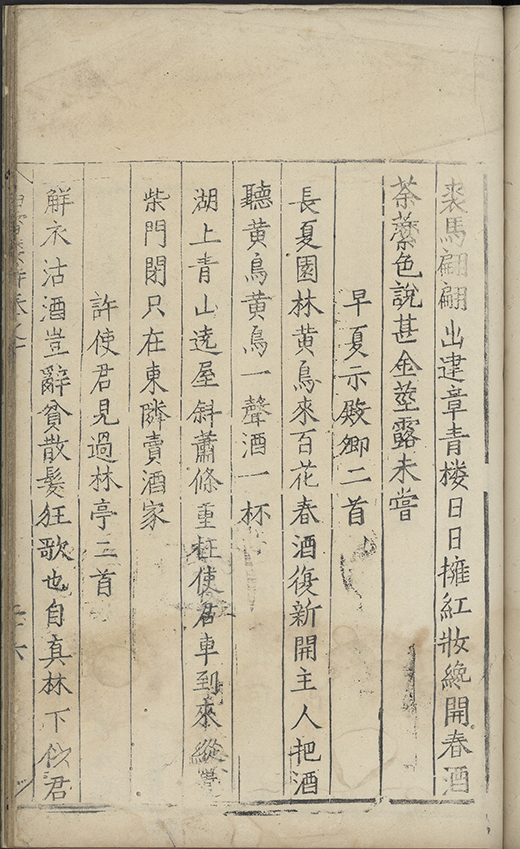 裘馬翩翩出建章青楼日日擁紅妝纔開春酒
荼䕷色說甚金莖露未嘗
早夏示殿卿二首
長夏園林黄鳥來百花春酒復新開主人把酒
聽黄鳥黄鳥一聲酒一杯
湖上青山遶屋斜蕭條重枉使君車到來縱
柴門閉只在東隣賣酒家
許使君見過林亭二首
解衣沽酒豈辭貧散髮狂歌也自真林下似君